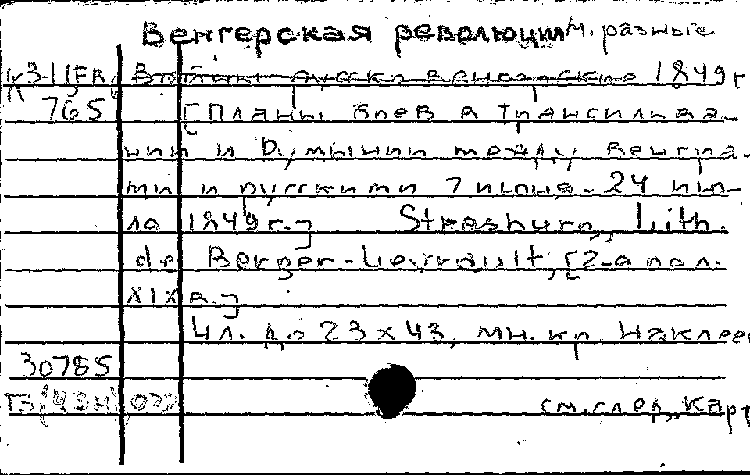 Венгерская революция М. разные
К3-11FR 1849 г
765 [Планы боев в Трансильва-
нии и Румынии между венгра-
ми и русскими 7 июня - 24 ию-
ля 1849 г.] Strasburg, Lith.
de Berger-Levrault, [2-а пол.
XIX в.]
4 л. до 23 х 43, мн. кр. Наклеен
30785
см. след. карт